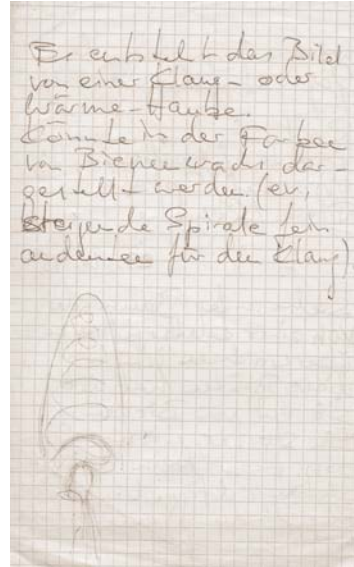 Es entsteht das Bild
von einer Klang- oder
Wärme-Haube.
Könnte in der Farbe
von Bienenwachs dar-
gestellt werden (ev.
steigende Spirale fein
andeuten für den Klang)